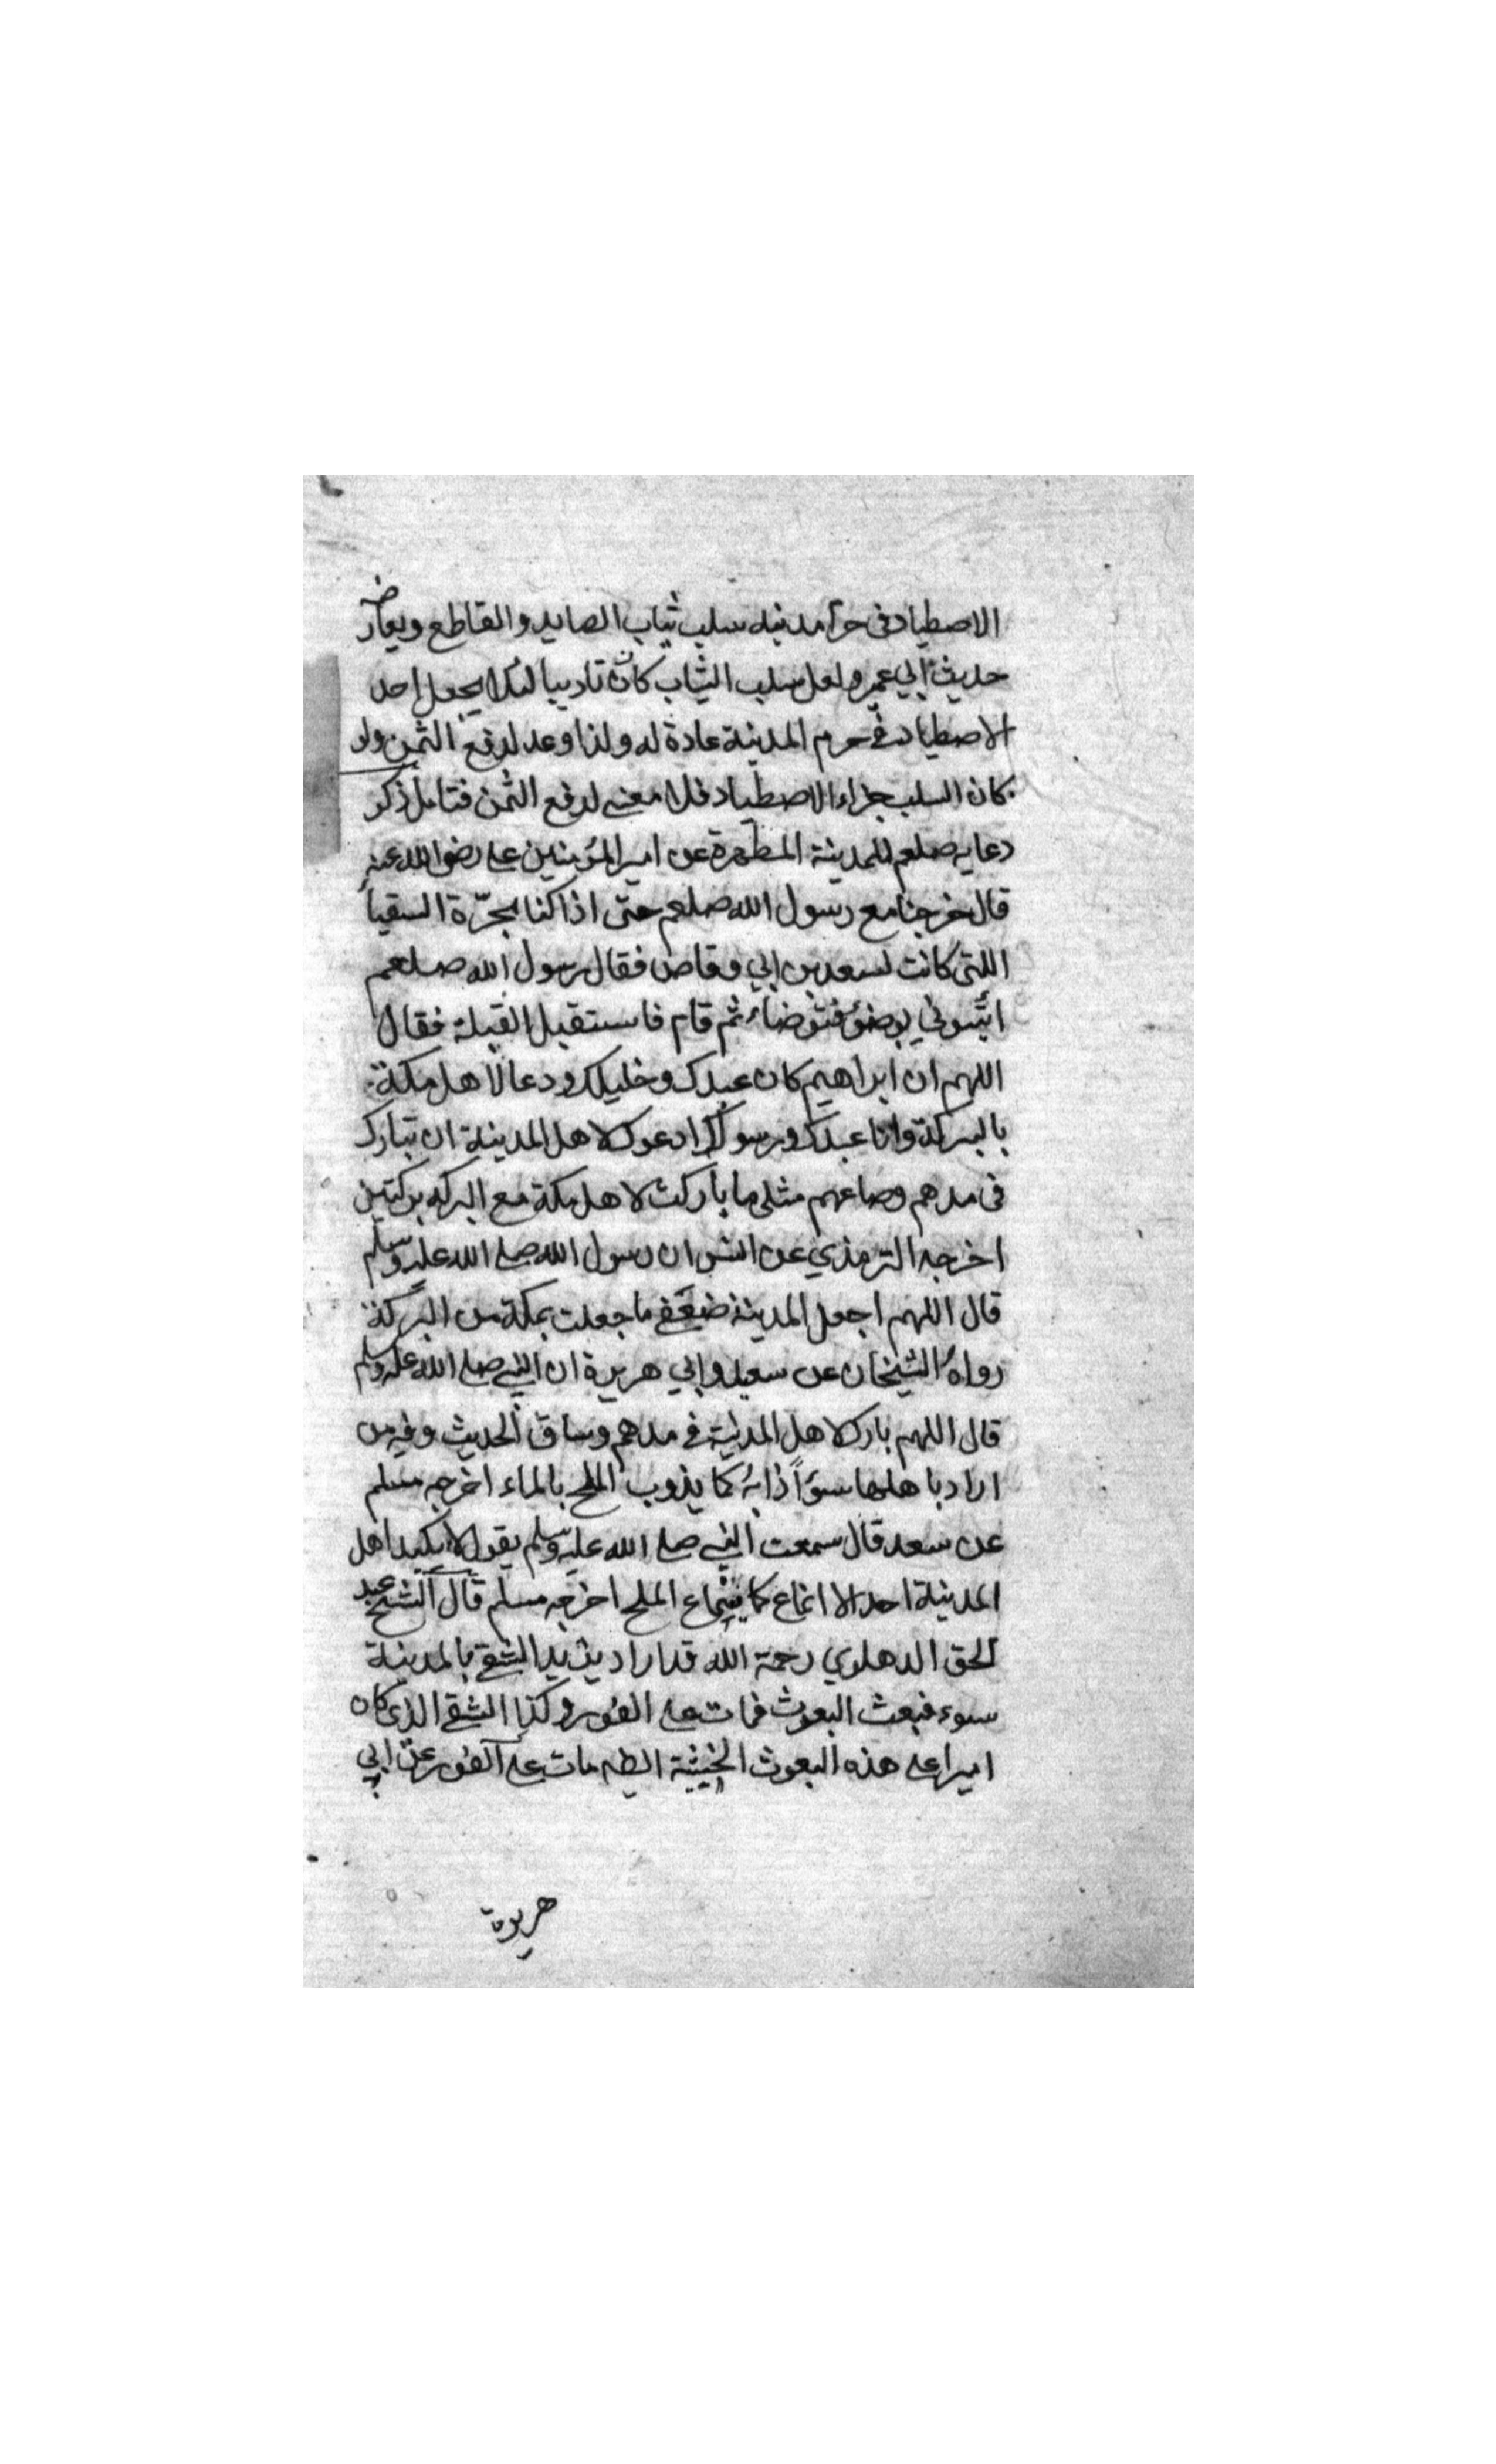 الاصطياد فى حرم مدينه سلب ثياب الصايد والقاطع ويعارضه
حديث ابي عمير ولعل سلب الثياب كان تاديبا لئلا يجعل احد
الاصطياد فى حرم المدينة عادة له ولذا وعد لدفع الثمن ولو
كان السلب جزاء الاصطياد فلا معنى لدفع الثمن فتامل ذكر
دعايه صلعم للمدينة المطهرة عن امير المؤمنين على رضى الله عنه
قال خرجنا مع رسول الله صلعم حتى اذا كنا بحرّة السقيا
اللتى كانت لسعد بن ابي وقاص فقال رسول الله صلعم
ايتوني بوضوء فتوضاء ثم قام فاستقبل القبلة فقال
اللهم ان ابراهيم كان عبدك وخليلك ودعا لاهل مكة
بالبركة وانا عبدك ورسولك ادعوك لاهل المدينة ان تبارك
فى مدهم وصاعهم مثلى ما باركت لاهل مكة مع البركه بركتين
اخرجه الترمذي عن انس ان رسول الله صلى الله عليه وسلم
قال اللهم اجعل المدينة ضعفى ما جعلت بمكة من البركة
رواه الشيخان عن سعيد وابي هريرة ان النبى صلى الله عليه وسلم
قال اللهم بارك لاهل المدينة فى مدهم وساق الحديث وفيه من
اراد باهلها سوأ ذابه كما يذوب الملح بالماء اخرجه مسلم
عن سعد قال سمعت النبى صلى الله عليه وسلم يقول لا يكيد اهل
المدينة احد الا انماع كما ينماع الملح اخرجه مسلم قال الشيخ عبد
الحق الدهلوي رحمة الله قد اراد يزيد الشقى بالمدينة
سوء فبعث البعوث فمات على الفور وكذا الشقى الذى كان
اميرا على هذه البعوث الخبيثة ايضا مات على الفور عن ابي
هريرة